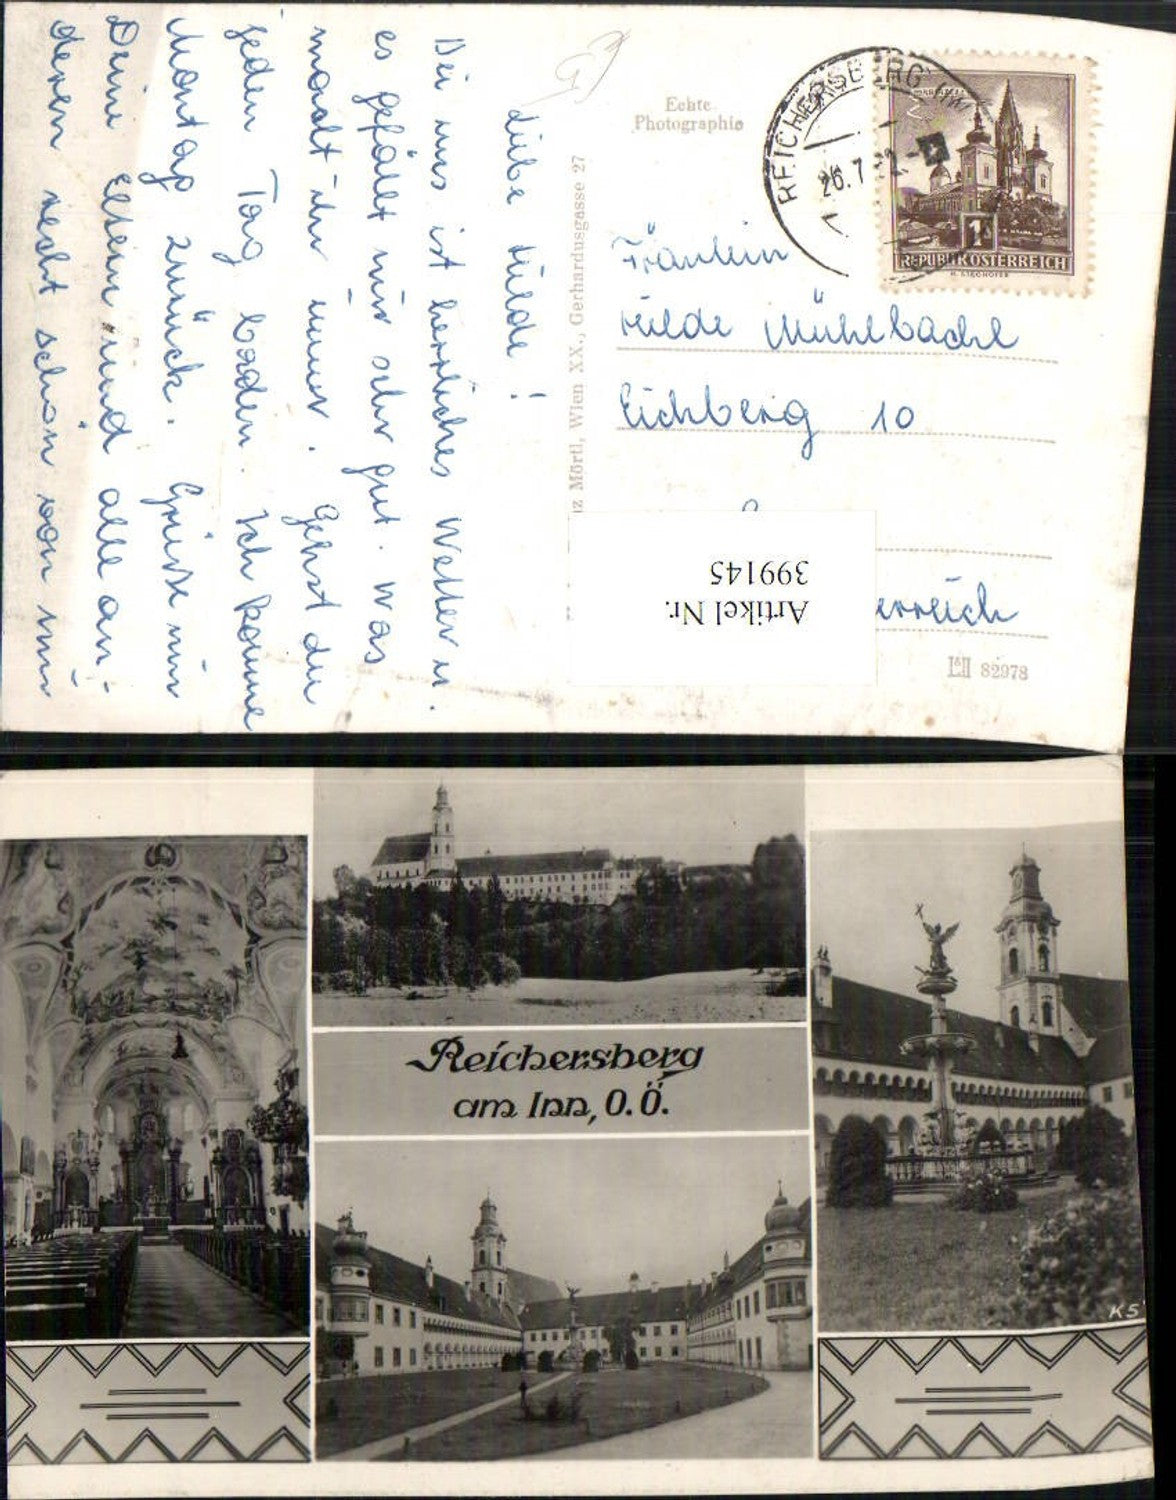 Liebe Hilde!
Bei uns ist herrliches Wetter u.
es gefällt mir sehr gut. Was
macht ihr immer. Gehst du
jeden Tag baden. Ich komme
Montag zurück. Grüße mir
Deine Eltern und alle an-
deren recht schön von mir
Echte
Photographie
z Mörtl, Wien XX., Gerhardusgasse 27
REICHERSBERG
26.7
MARIAZELL
1
REPUBLIK ÖSTERREICH
Fräulein
Hilde Mühlbachl
Eichberg 10
erreich
82978
Artikel Nr.
399145
Reichersberg
am Inn, O.Ö.
KS